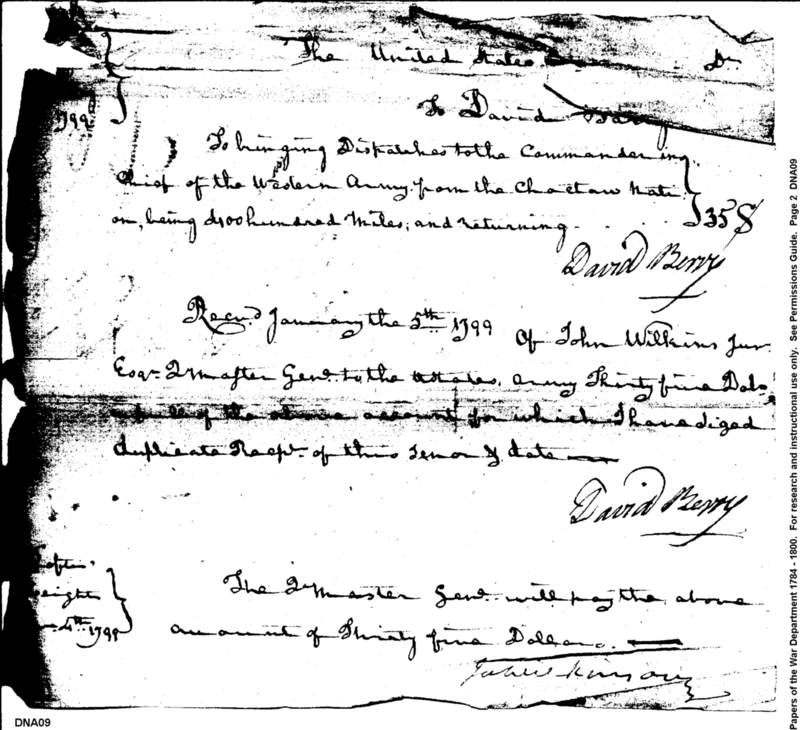 The United States Dr.
To David Barry
1799
To bringing Dispatches to the Commander in
Chief of the Western Army from the Choctaw Nati
on, being 400 hundred Miles; and returning } 35 $
David Berry
Recvd. January the 5th 1799 Of John Wilkins Jun.
Esqr. QMaster Genl. to the States. Army Thirty five Dols.
in full of the above account for which I have siged
duplicate Recpts. of this Tenor & date
David Berry
The QrMaster Genl. will pay the above
account of Thirty five Dollars.
eight
4th 1799
Papers of the War Department 1784 - 1800. For research and instructional use only. See Permissions Guide. Page 2 DNA09
DNA09